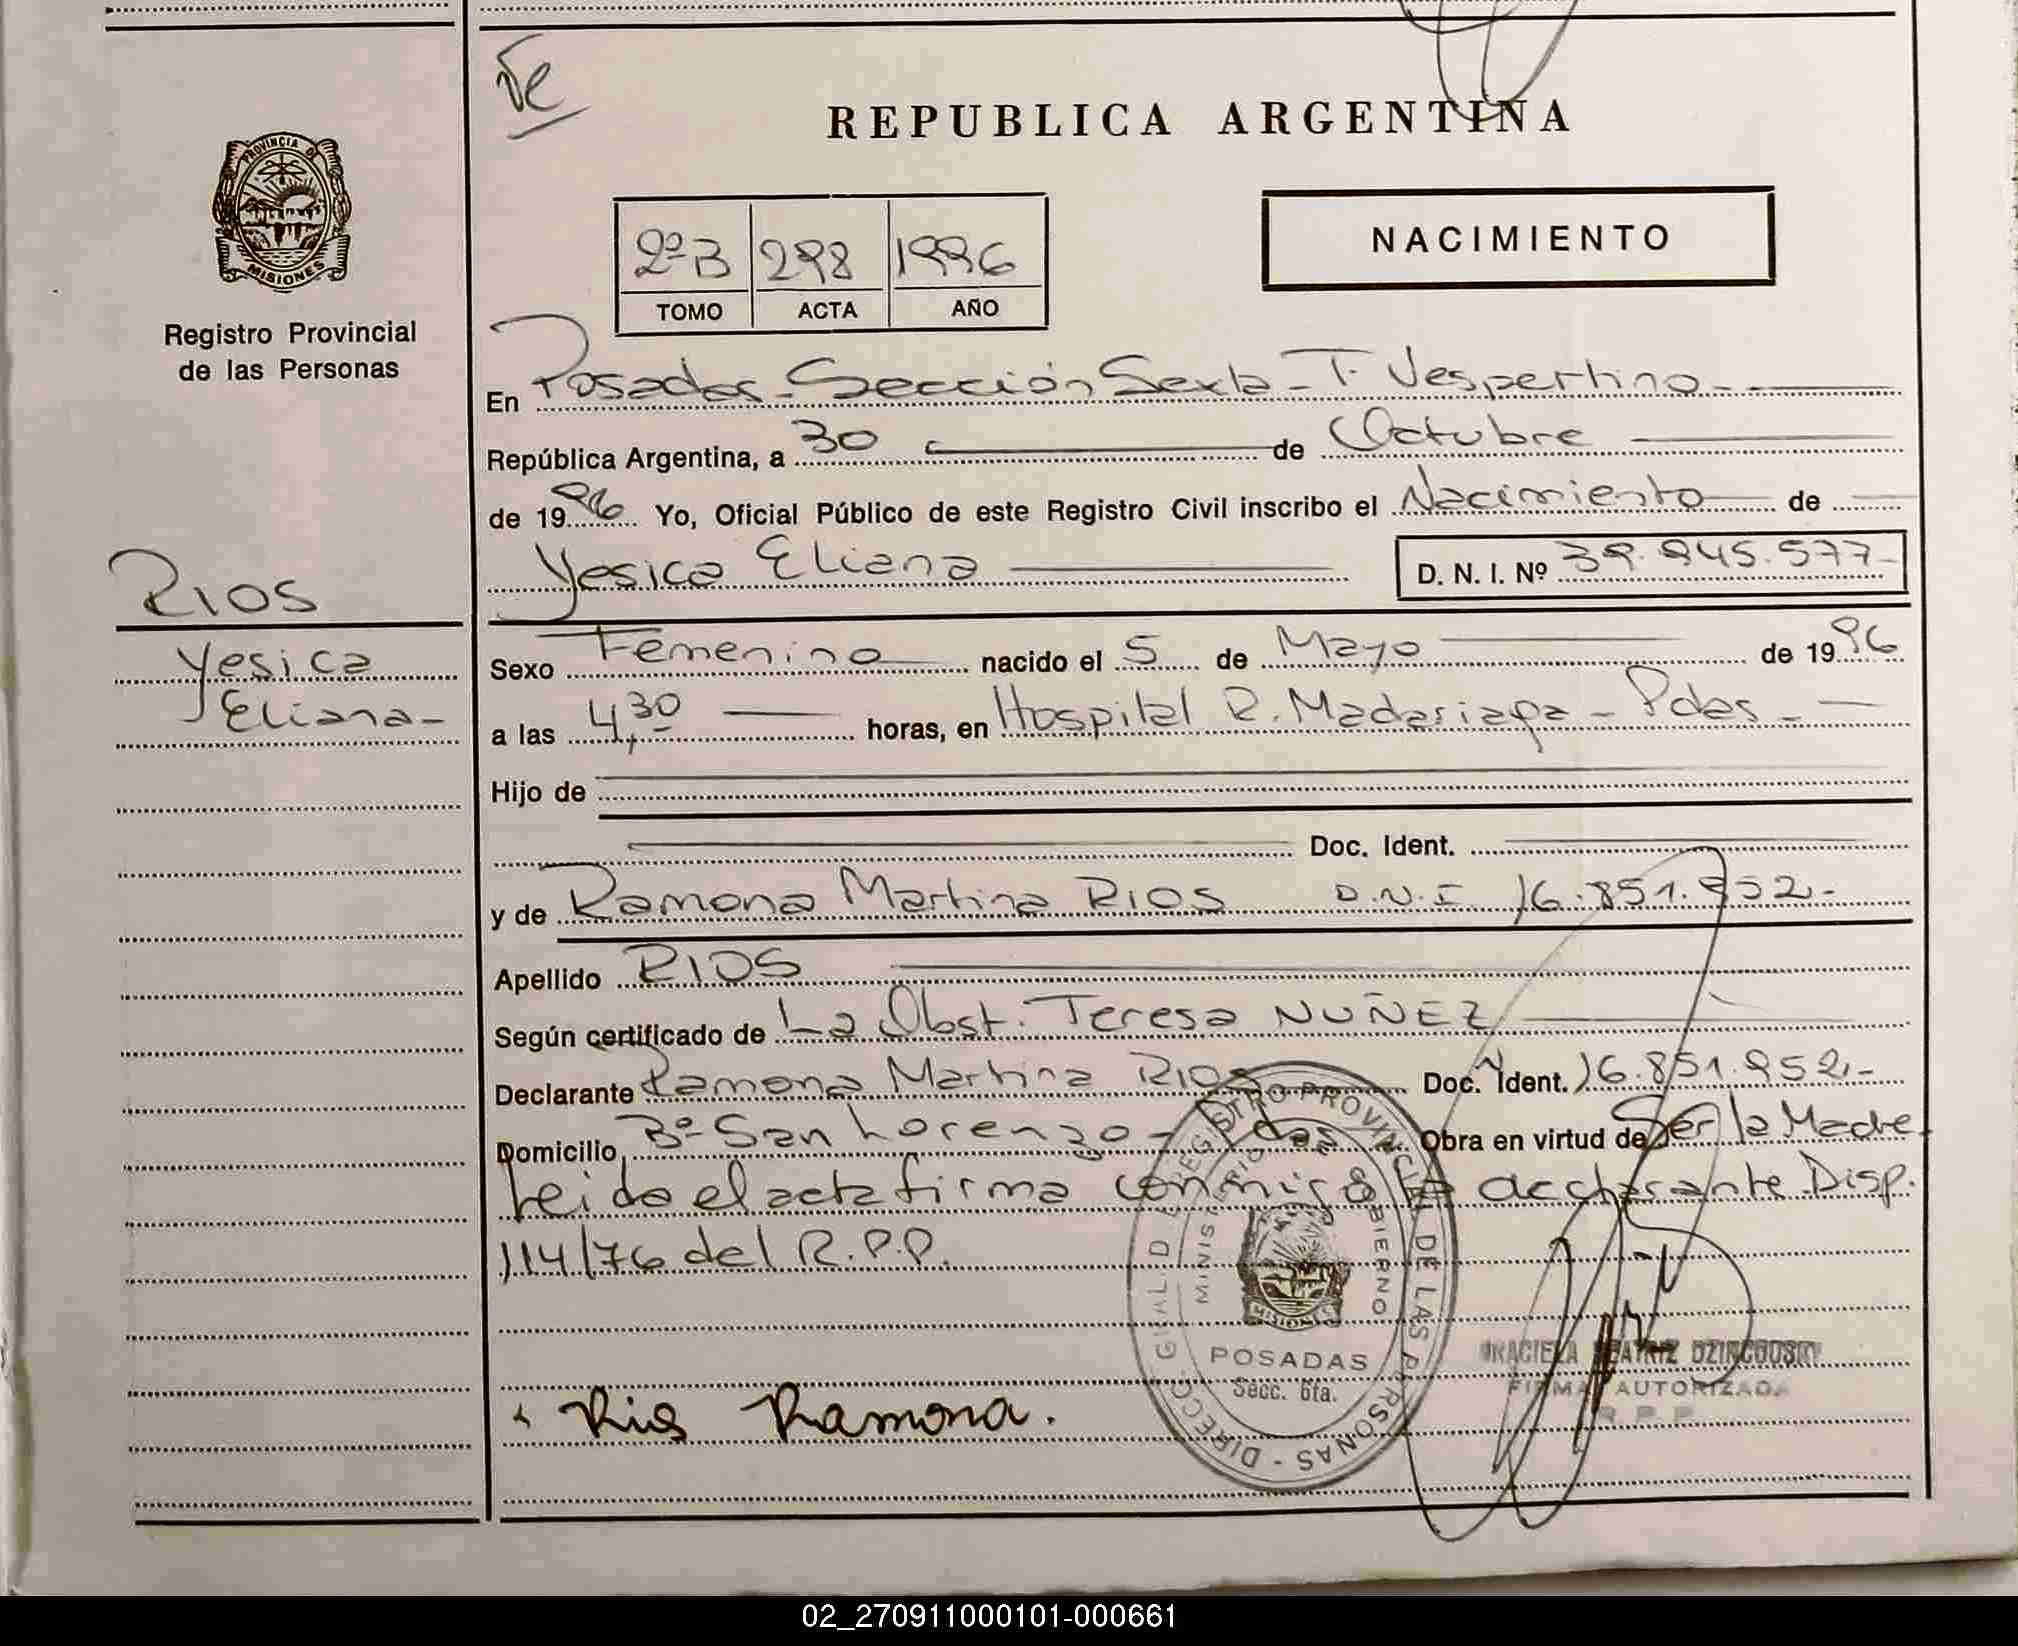 Ve
REPUBLICA ARGENTINA
PROVINCIA DE
MISIONES
Registro Provincial
de las Personas
2º B 298 1996
TOMO ACTA AÑO
NACIMIENTO
En Posadas - Sección Sexta - T. Vespertino -
República Argentina, a 30 de Octubre
de 1996 Yo, Oficial Público de este Registro Civil inscribo el Nacimiento de
Yesica Eliana D. N. I. Nº 39.945.577-
RIOS
Yesica
Eliana-
Sexo Femenino nacido el 5 de Mayo de 1996
a las 4,30 horas, en Hospital R. Madariaga - Pdas -
Hijo de
Doc. Ident.
y de Ramona Martina RIOS D.N.I. 16.851.952.-
Apellido RIOS
Según certificado de La Obst. Teresa NUÑEZ
Declarante Ramona Martina RIOS Doc. Ident. 16.851.952.-
Domicilio Bº San Lorenzo - Pdas Obra en virtud de Ser la Madre.
Leido el acta firma conmigo la declarante Disp.
114/76 del R.P.P.
DIRECC. GRAL. D REGISTRO PROVINCIAL DE LAS PERSONAS -
MINISTERIO DE GOBIERNO
MISIONES
POSADAS
Secc. 6ta.
GRACIELA BEATRIZ
FIRMA AUTORIZADA
R. P. P.
Rios Ramona.
02_270911000101-000661